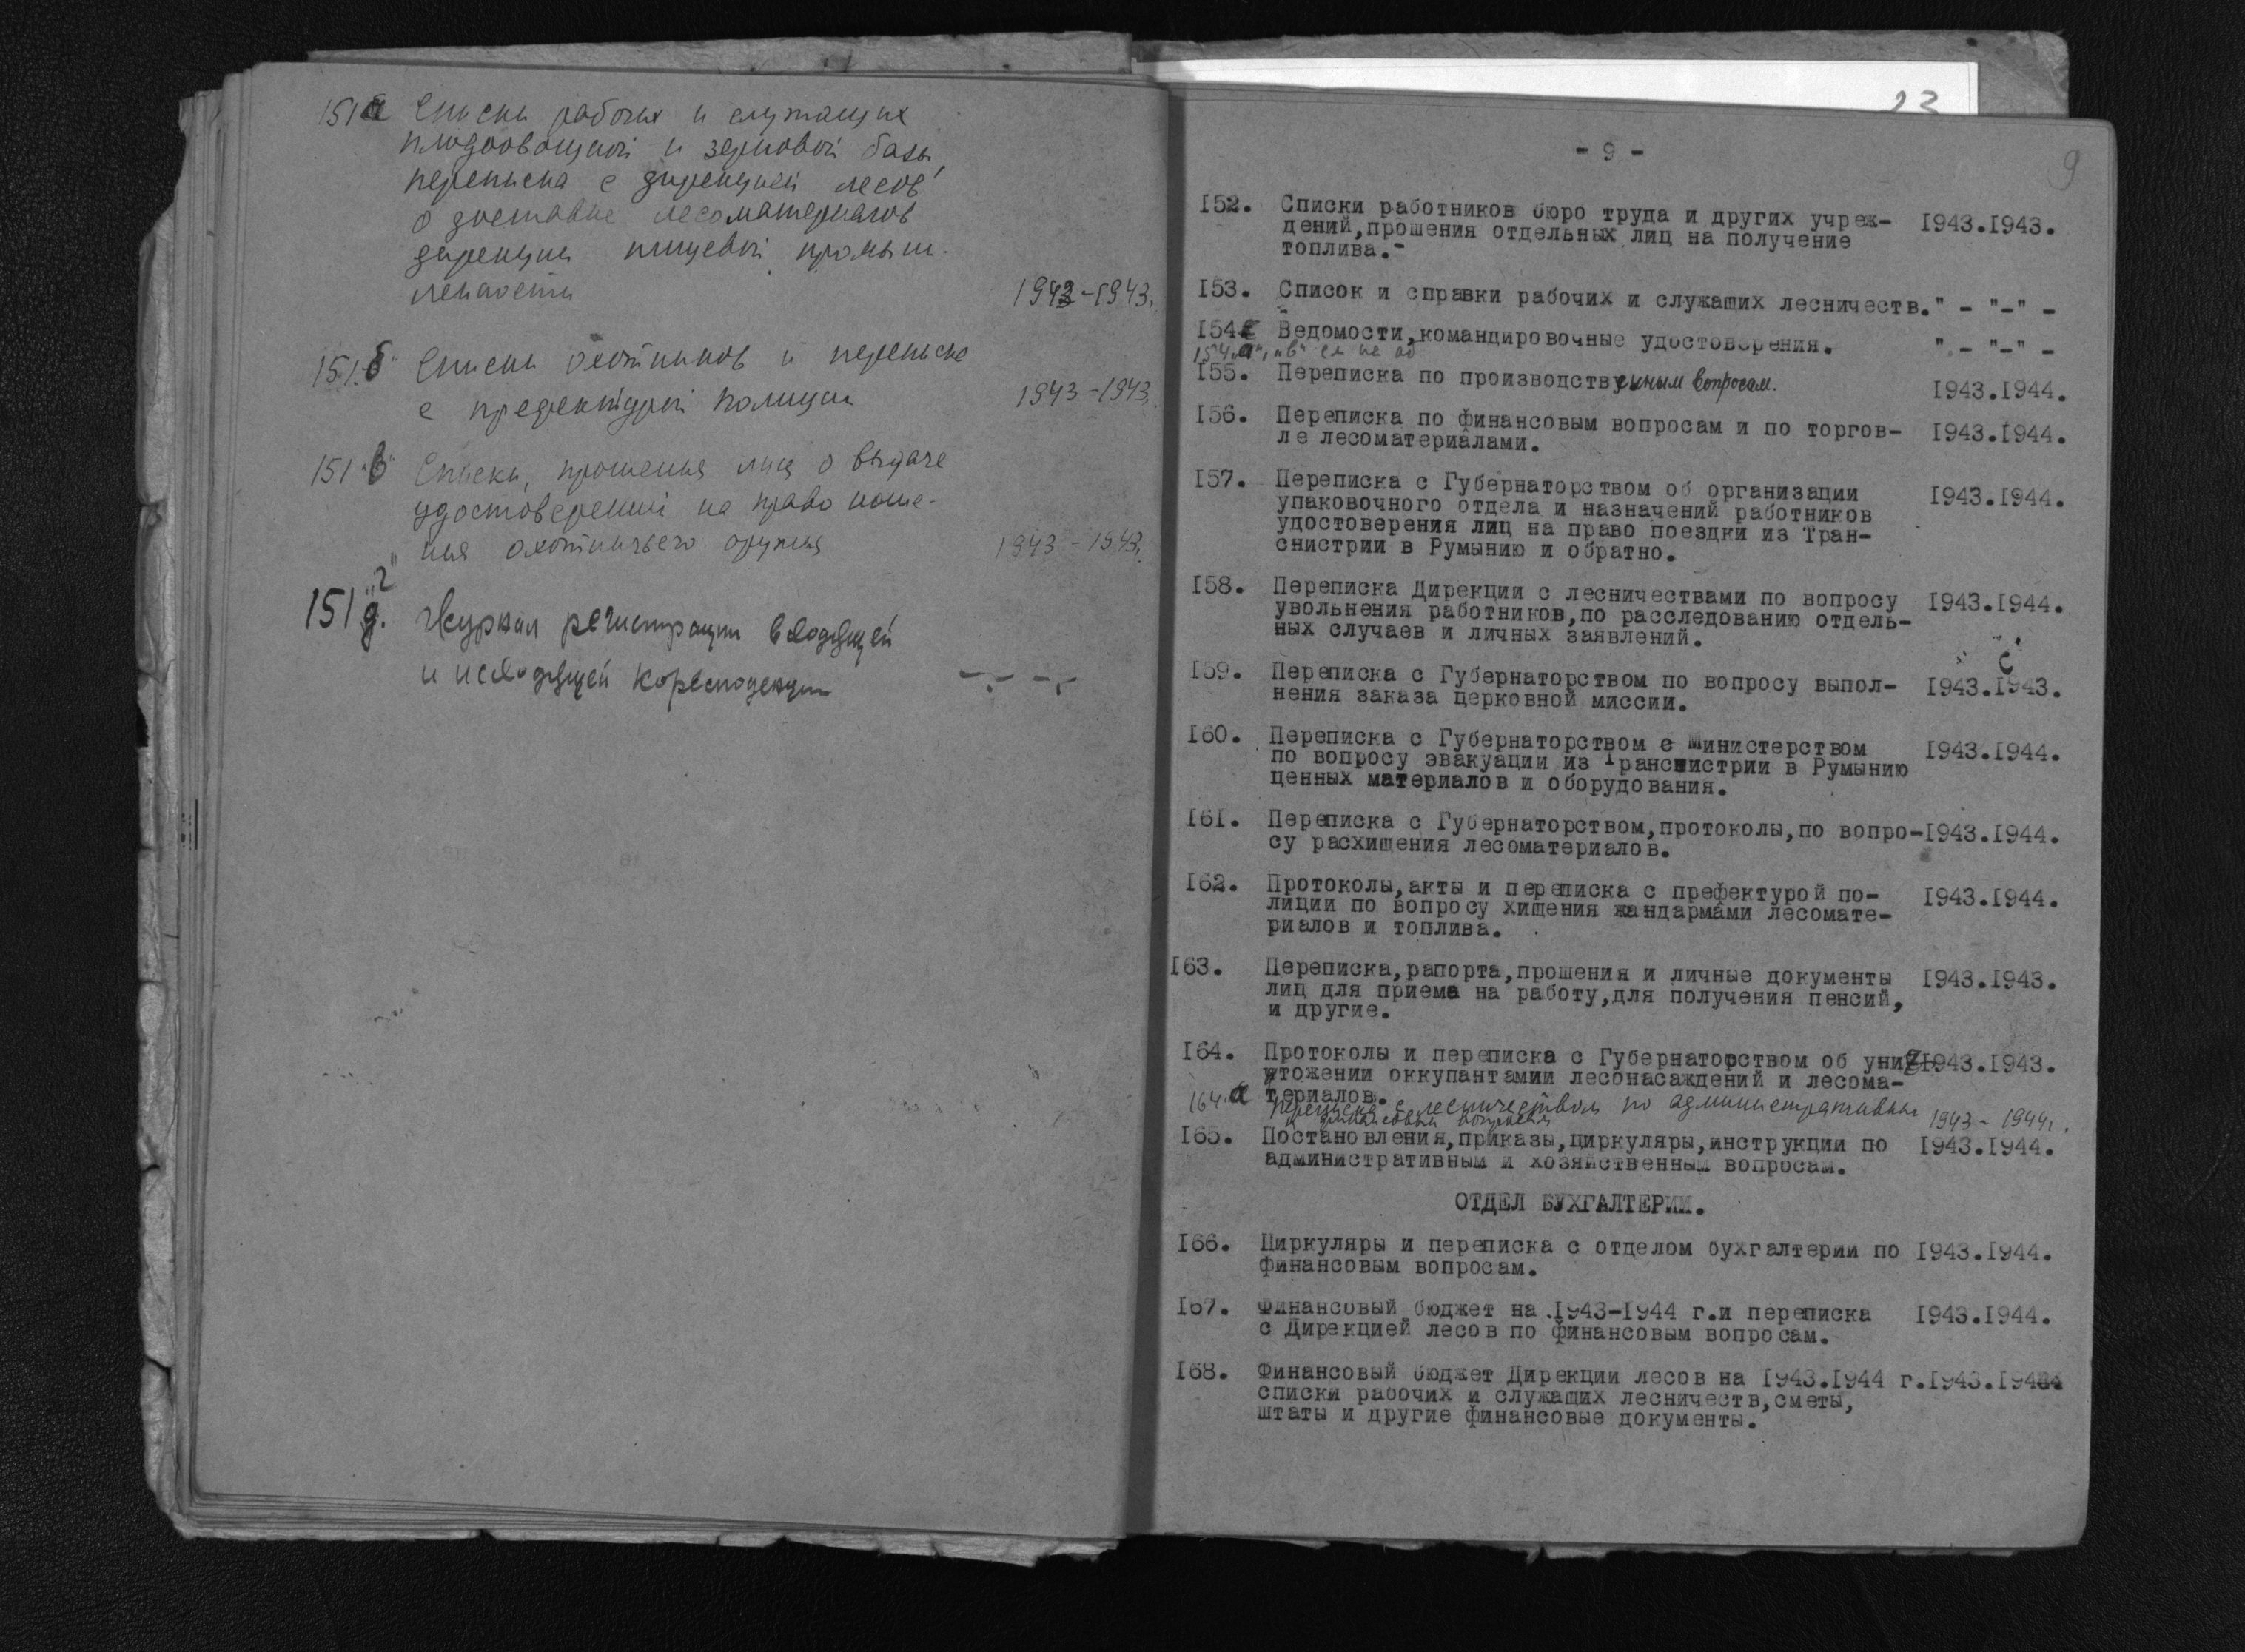 151 а Списки рабочих и служащих
плодоовощной и зерновой базы,
переписка с дирекцией лесов
о доставке лесоматериалов
дирекции пищевой промыш-
лености 1943-1943.
151 "б" Списки охотников и переписка
с префектурой полиции 1943-1943.
151 "в" Списки, прошения лиц о выдаче
удостоверений на право ноше-
ния охотничьего оружия 1943-1943.
"г"
151 д. Журнал регистрации входящей
и исходящей коресподенции -.- -.-
23
- 9 -
9
I52. Списки работников бюро труда и других учреж- I943.I943.
дений,прошения отдельных лиц на получение
топлива.-
I53. Список и справки рабочих и служащих лесничеств." - "-" -
I54. Ведомости,командировочные удостоверения. " - "-" -
154 "а", "в" см на об
I55. Переписка по производственным вопросам. I943.I944.
I56. Переписка по финансовым вопросам и по торгов- I943.I944.
ле лесоматериалами.
I57. Переписка с Губернаторством об организации I943.I944.
упаковочного отдела и назначений работников
удостоверения лиц на право поездки из Тран-
снистрии в Румынию и обратно.
I58. Переписка Дирекции с лесничествами по вопросу I943.I944.
увольнения работников,по расследованию отдель-
ных случаев и личных заявлений.
I59. Переписка с Губернаторством по вопросу выпол- I943.I943.
нения заказа церковной миссии.
I60. Переписка с Губернаторством с Министерством I943.I944.
по вопросу эвакуации из Транснистрии в Румынию
ценных материалов и оборудования.
I6I. Переписка с Губернаторством,протоколы,по вопро-I943.I944.
су расхищения лесоматериалов.
I62. Протоколы,акты и переписка с префектурой по- I943.I944.
лиции по вопросу хищения жандармами лесомате-
риалов и топлива.
I63. Переписка,рапорта,прошения и личные документы I943.I943.
лиц для приема на работу,для получения пенсий,
и другие.
I64. Протоколы и переписка с Губернаторством об уни- I943.I943.
чтожении оккупантамии лесонасаждений и лесома-
териалов.
164 а Переписка с лесничеством по административным 1943-1944г.
и финансовым вопросам
I65. Постановления,приказы,циркуляры,инструкции по I943.I944.
административным и хозяйственным вопросам.
ОТДЕЛ БУХГАЛТЕРИИ.
I66. Циркуляры и переписка с отделом бухгалтерии по I943.I944.
финансовым вопросам.
I67. Финансовый бюджет на I943-I944 г.и переписка I943.I944.
с Дирекцией лесов по финансовым вопросам.
I68. Финансовый бюджет Дирекции лесов на I943.I944 г.I943.I944
списки рабочих и служащих лесничеств,сметы,
штаты и другие финансовые документы.